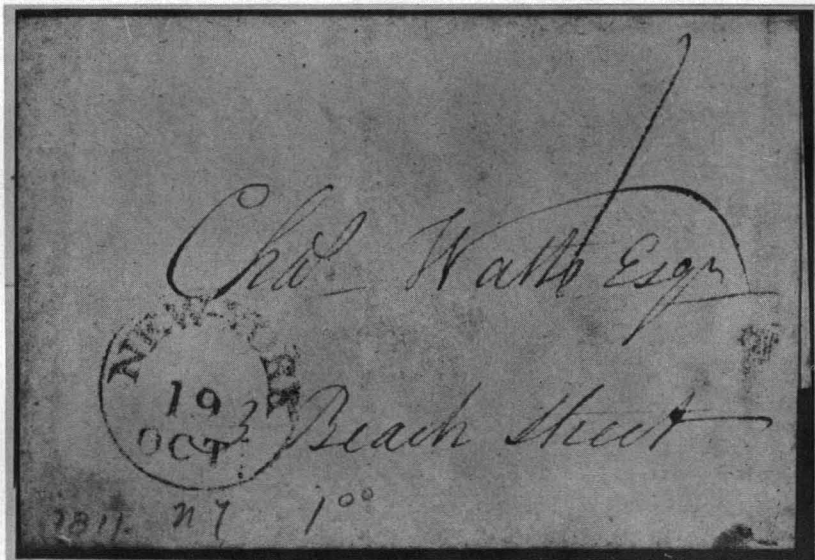 Chas Watts Esqr
NEW-YORK
19
OCT
3 Beach Street
1811. NY 1⁰⁰